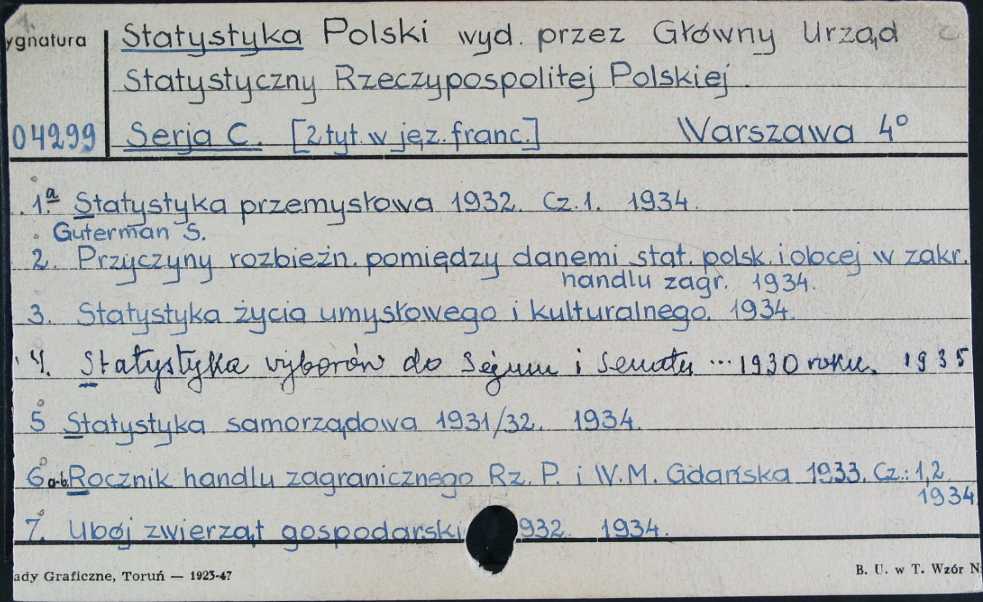 ygnatura
Statystyka Polski wyd. przez Główny Urząd
Statystyczny Rzeczypospolitej Polskiej.
04299 Serja C. [2 tyt. w jęz. franc.] Warszawa 4°
1.a Statystyka przemysłowa 1932. Cz. 1. 1934.
Guterman S.
2. Przyczyny rozbieżn. pomiędzy danemi stat. polsk. i obcej w zakr.
handlu zagr. 1934.
3. Statystyka życia umysłowego i kulturalnego. 1934.
4. Statystyka wyborów do Sejmu i Senatu ... 1930 roku. 1935
5 Statystyka samorządowa 1931/32. 1934.
6 a-b. Rocznik handlu zagranicznego Rz. P. i W. M. Gdańska 1933. Cz.: 1, 2
1934
7. Ubój zwierząt gospodarski 932. 1934.
ady Graficzne, Toruń — 1923-47 B. U. w T. Wzór N